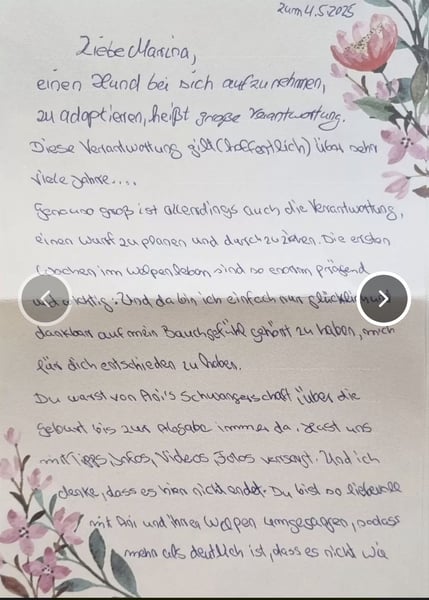 zum 4.5.2025
Liebe Marina,
einen Hund bei sich aufzunehmen,
zu adoptieren, heißt große Verantwortung.
Diese Verantwortung gilt (hoffentlich) über sehr
viele Jahre....
Genauso groß ist allerdings auch die Verantwortung,
einen Wurf zu planen und durchzuziehen. Die ersten
Wochen im Welpenleben sind so enorm prägend
und wichtig. Und da bin ich einfach nur glücklich und
dankbar auf mein Bauchgefühl gehört zu haben, mich
für dich entschieden zu haben.
Du warst von Ani's Schwangerschaft, über die
Geburt bis zur Abgabe immer da. Hast uns
mit Tipps, Infos, Videos, Fotos versorgt. Und ich
denke, dass es hier nicht endet. Du bist so liebevoll
mit Ani und ihren Welpen umgegangen, sodass
mehr als deutlich ist, dass es nicht wie